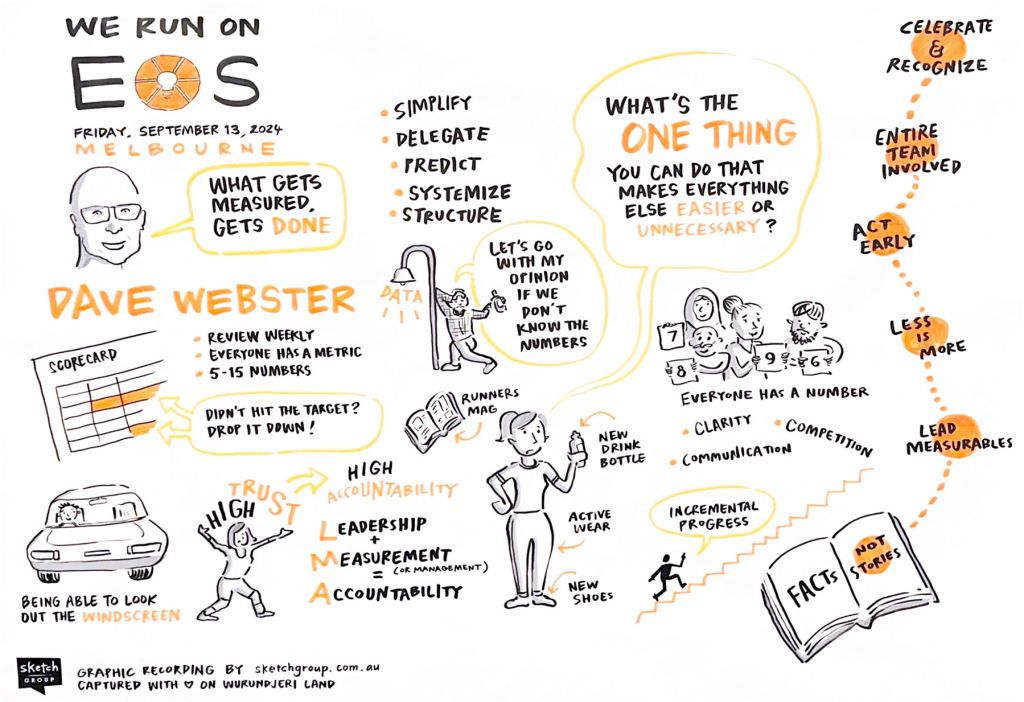 WE RUN ON
EOS
FRIDAY, SEPTEMBER 13, 2024
MELBOURNE
WHAT GETS
MEASURED,
GETS DONE
DAVE WEBSTER
SCORECARD
• REVIEW WEEKLY
• EVERYONE HAS A METRIC
• 5-15 NUMBERS
DIDN'T HIT THE TARGET?
DROP IT DOWN!
BEING ABLE TO LOOK
OUT THE WINDSCREEN
HIGH
TRUST
HIGH
ACCOUNTABILITY
LEADERSHIP
+
MEASUREMENT
= (OR MANAGEMENT)
ACCOUNTABILITY
• SIMPLIFY
• DELEGATE
• PREDICT
• SYSTEMIZE
• STRUCTURE
DATA
LET'S GO
WITH MY
OPINION
IF WE
DON'T
KNOW THE
NUMBERS
WHAT'S THE
ONE THING
YOU CAN DO THAT
MAKES EVERYTHING
ELSE EASIER OR
UNNECESSARY?
RUNNERS
MAG
NEW
DRINK
BOTTLE
ACTIVE
WEAR
NEW
SHOES
7
8
9
6
EVERYONE HAS A NUMBER
• CLARITY
• COMPETITION
• COMMUNICATION
INCREMENTAL
PROGRESS
CELEBRATE
&
RECOGNIZE
ENTIRE
TEAM
INVOLVED
ACT
EARLY
LESS
IS
MORE
LEAD
MEASURABLES
FACTS
NOT
STORIES
sketch
GROUP
GRAPHIC RECORDING BY sketchgroup.com.au
CAPTURED WITH ♡ ON WURUNDJERI LAND